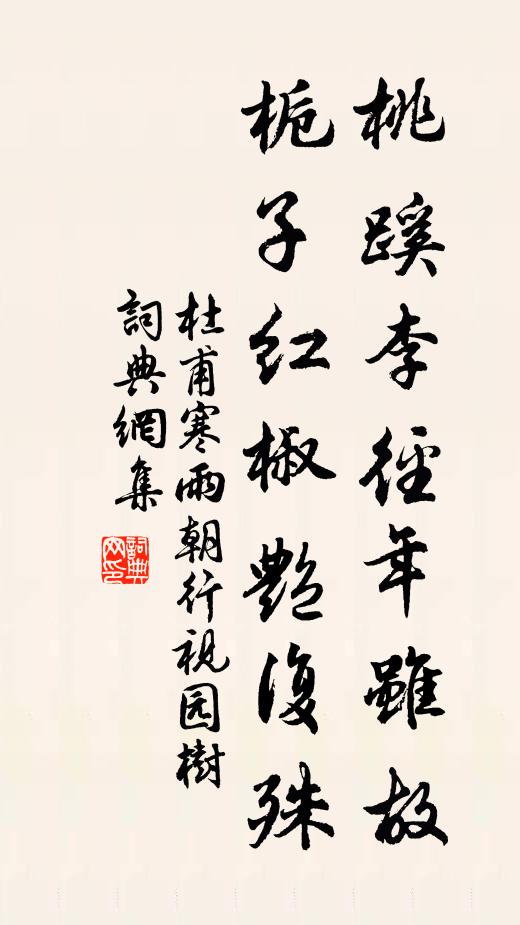 桃蹊李徑年雖故
栀子红椒艷復殊
杜甫寒雨朝行視园樹
詞典網集
詞典网印